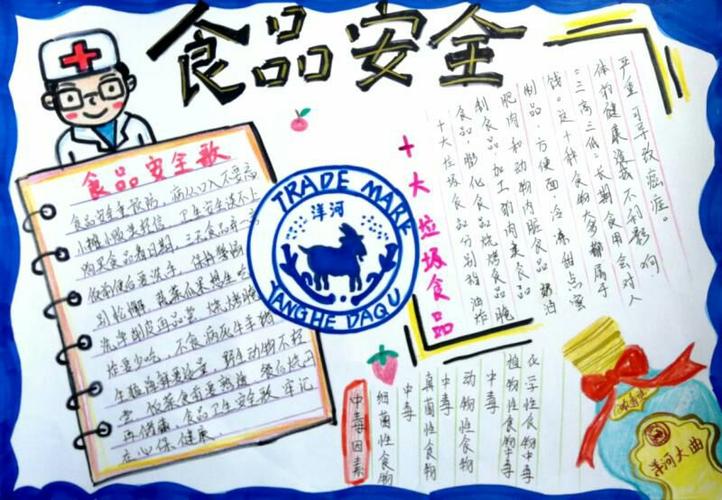 食品安全
食品安全歌
食品安全重防治，病从口入不要忘
小摊小贩莫轻信，卫生安全谈不上
购买食品看日期，三无食品
饭前便后要洗手，保持整洁
别松懈，蔬菜瓜果想生吃
洗净削皮再品尝，烧烤油
炸要少吃，不食病死牛羊猪
生猛海鲜要适量，野生动物不打
饭菜食前要熟透
再储藏，食品卫生安全歌 牢记
在心保健康
TRADE MARK
洋河
YANGHE DAQU
十大垃圾食品
十大垃圾食品分别指油炸
食品、膨化食品、烧烤食品、腌
制食品、加工的肉类食品
肥肉和动物内脏食品 奶油
制品、方便面、冷冻甜点 蜜
饯。这十种食物大多都属于
“三高三低”长期食用会对人
体的健康造成不利影响
严重可导致癌症。
中毒因素
细菌性食物
中毒
真菌性食物
中毒
动物性食物
中毒
植物性食物中毒
化学性食物中毒
洋河大曲